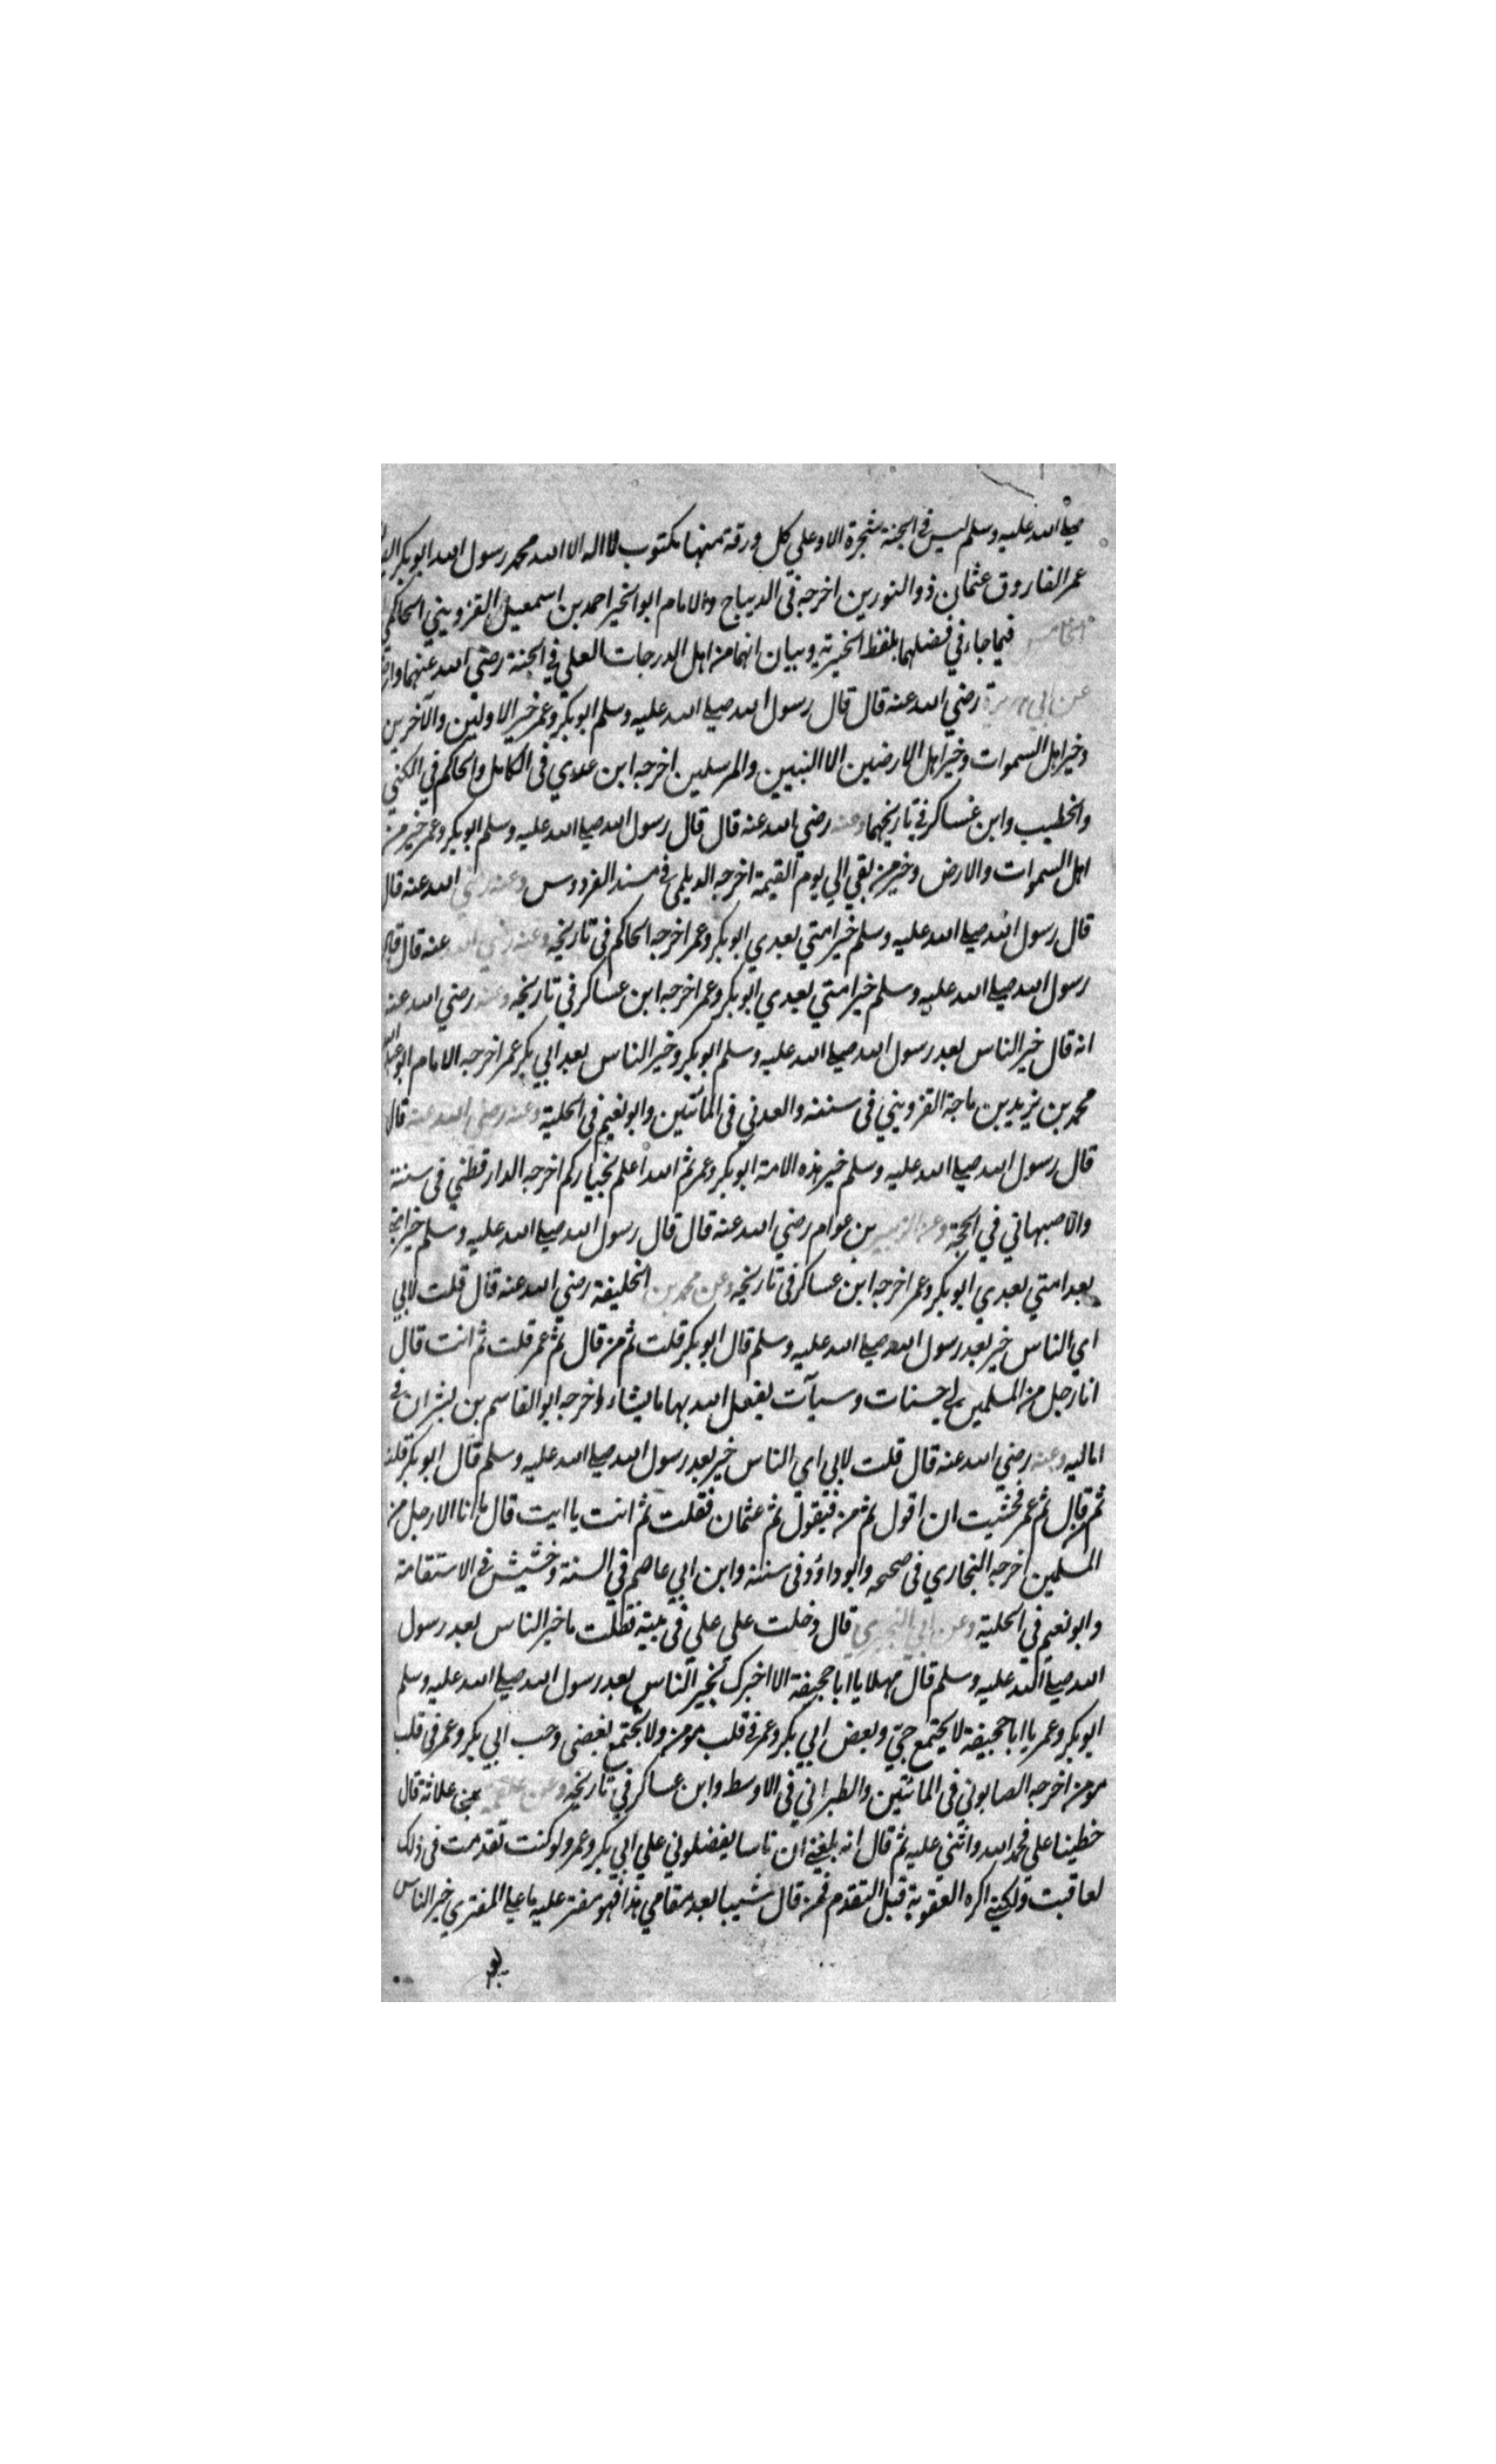 صلى الله عليه وسلم ليس في الجنة شجرة الا وعلي كل ورقة منها مكتوب لا اله الا الله محمد رسول الله ابو بكر
عمر الفاروق عثمان ذو النورين اخرجه في الديباج والامام ابو الخير احمد بن اسمعيل القزويني الحاكمي
الخامس فيما جاء في فضلهما بلفظ الخيرية وبيان انهما من اهل الدرجات العلي في الجنة رضي الله عنهما
عن ابي هريرة رضي الله عنه قال قال رسول الله صلى الله عليه وسلم ابو بكر وعمر خير الاولين والآخرين
وخير اهل السموات وخير اهل الارضين الا النبيين والمرسلين اخرجه ابن عدي في الكامل والحاكم في الكني
والخطيب وابن عساكر في تاريخيهما وعنه رضي الله عنه قال قال رسول الله صلى الله عليه وسلم ابو بكر وعمر خير من
اهل السموات والارض وخير من بقي الي يوم القيمة اخرجه الديلمي في مسند الفردوس وعنه رضي الله عنه قال
قال رسول الله صلى الله عليه وسلم خير امتي بعدي ابو بكر وعمر اخرجه الحاكم في تاريخه وعنه رضي الله عنه قال قال
رسول الله صلى الله عليه وسلم خير امتي بعدي ابو بكر وعمر اخرجه ابن عساكر في تاريخه وعنه رضي الله عنه
انه قال خير الناس بعد رسول الله صلى الله عليه وسلم ابو بكر وخير الناس بعد ابي بكر عمر اخرجه الامام ابو عبد الله
محمد بن يزيد بن ماجة القزويني في سننه والعدني في المأتين وابو نعيم في الحلية وعنه رضي الله عنه قال
قال رسول الله صلى الله عليه وسلم خير هذه الامة ابو بكر وعمر ثم الله اعلم بخياركم اخرجه الدارقطني في سننه
والاصبهاني في الحجة وعن الزبير بن عوام رضي الله عنه قال قال رسول الله صلى الله عليه وسلم خير
بعد امتي بعدي ابو بكر وعمر اخرجه ابن عساكر في تاريخه وعن محمد بن الخليفة رضي الله عنه قال قلت لابي
اي الناس خير بعد رسول الله صلى الله عليه وسلم قال ابو بكر قلت ثم من قال ثم عمر قلت ثم انت قال
انا رجل من المسلمين لي حسنات وسيآت يفعل الله بها ما يشاء واخرجه ابو القاسم بن بشران في
اماليه وعنه رضي الله عنه قال قلت لابي اي الناس خير بعد رسول الله صلى الله عليه وسلم قال ابو بكر قلت
ثم من قال ثم عمر فخشيت ان اقول ثم من فيقول ثم عثمان فقلت ثم انت يا ابت قال ما انا الا رجل من
المسلمين اخرجه البخاري في صحيحه وابو داؤد في سننه وابن ابي عاصم في السنة وخشيش في الاستقامة
وابو نعيم في الحلية وعن ابي البختري قال دخلت علي علي في بيته فقلت ما خير الناس بعد رسول
الله صلى الله عليه وسلم قال مهلا يا ابا جحيفة الا اخبرك بخير الناس بعد رسول الله صلى الله عليه وسلم
ابو بكر وعمر يا ابا جحيفة لا يجتمع حبي وبعض ابي بكر وعمر في قلب مومن ولا يجتمع بغضي وحب ابي بكر وعمر في قلب
مومن اخرجه الصابوني في المائتين والطبراني في الاوسط وابن عساكر في تاريخه وعن علقمة علاثة قال
خطبنا علي فحمد الله واثني عليه ثم قال انه بلغني ان ناسا يفضلوني علي ابي بكر وعمر ولو كنت تقدمت في ذلك
لعاقبت ولكني اكره العقوبة قبل التقدم فمن قال شيبا بعد مقامي هذا فهو مفتر عليه ما علي المفتري خير الناس